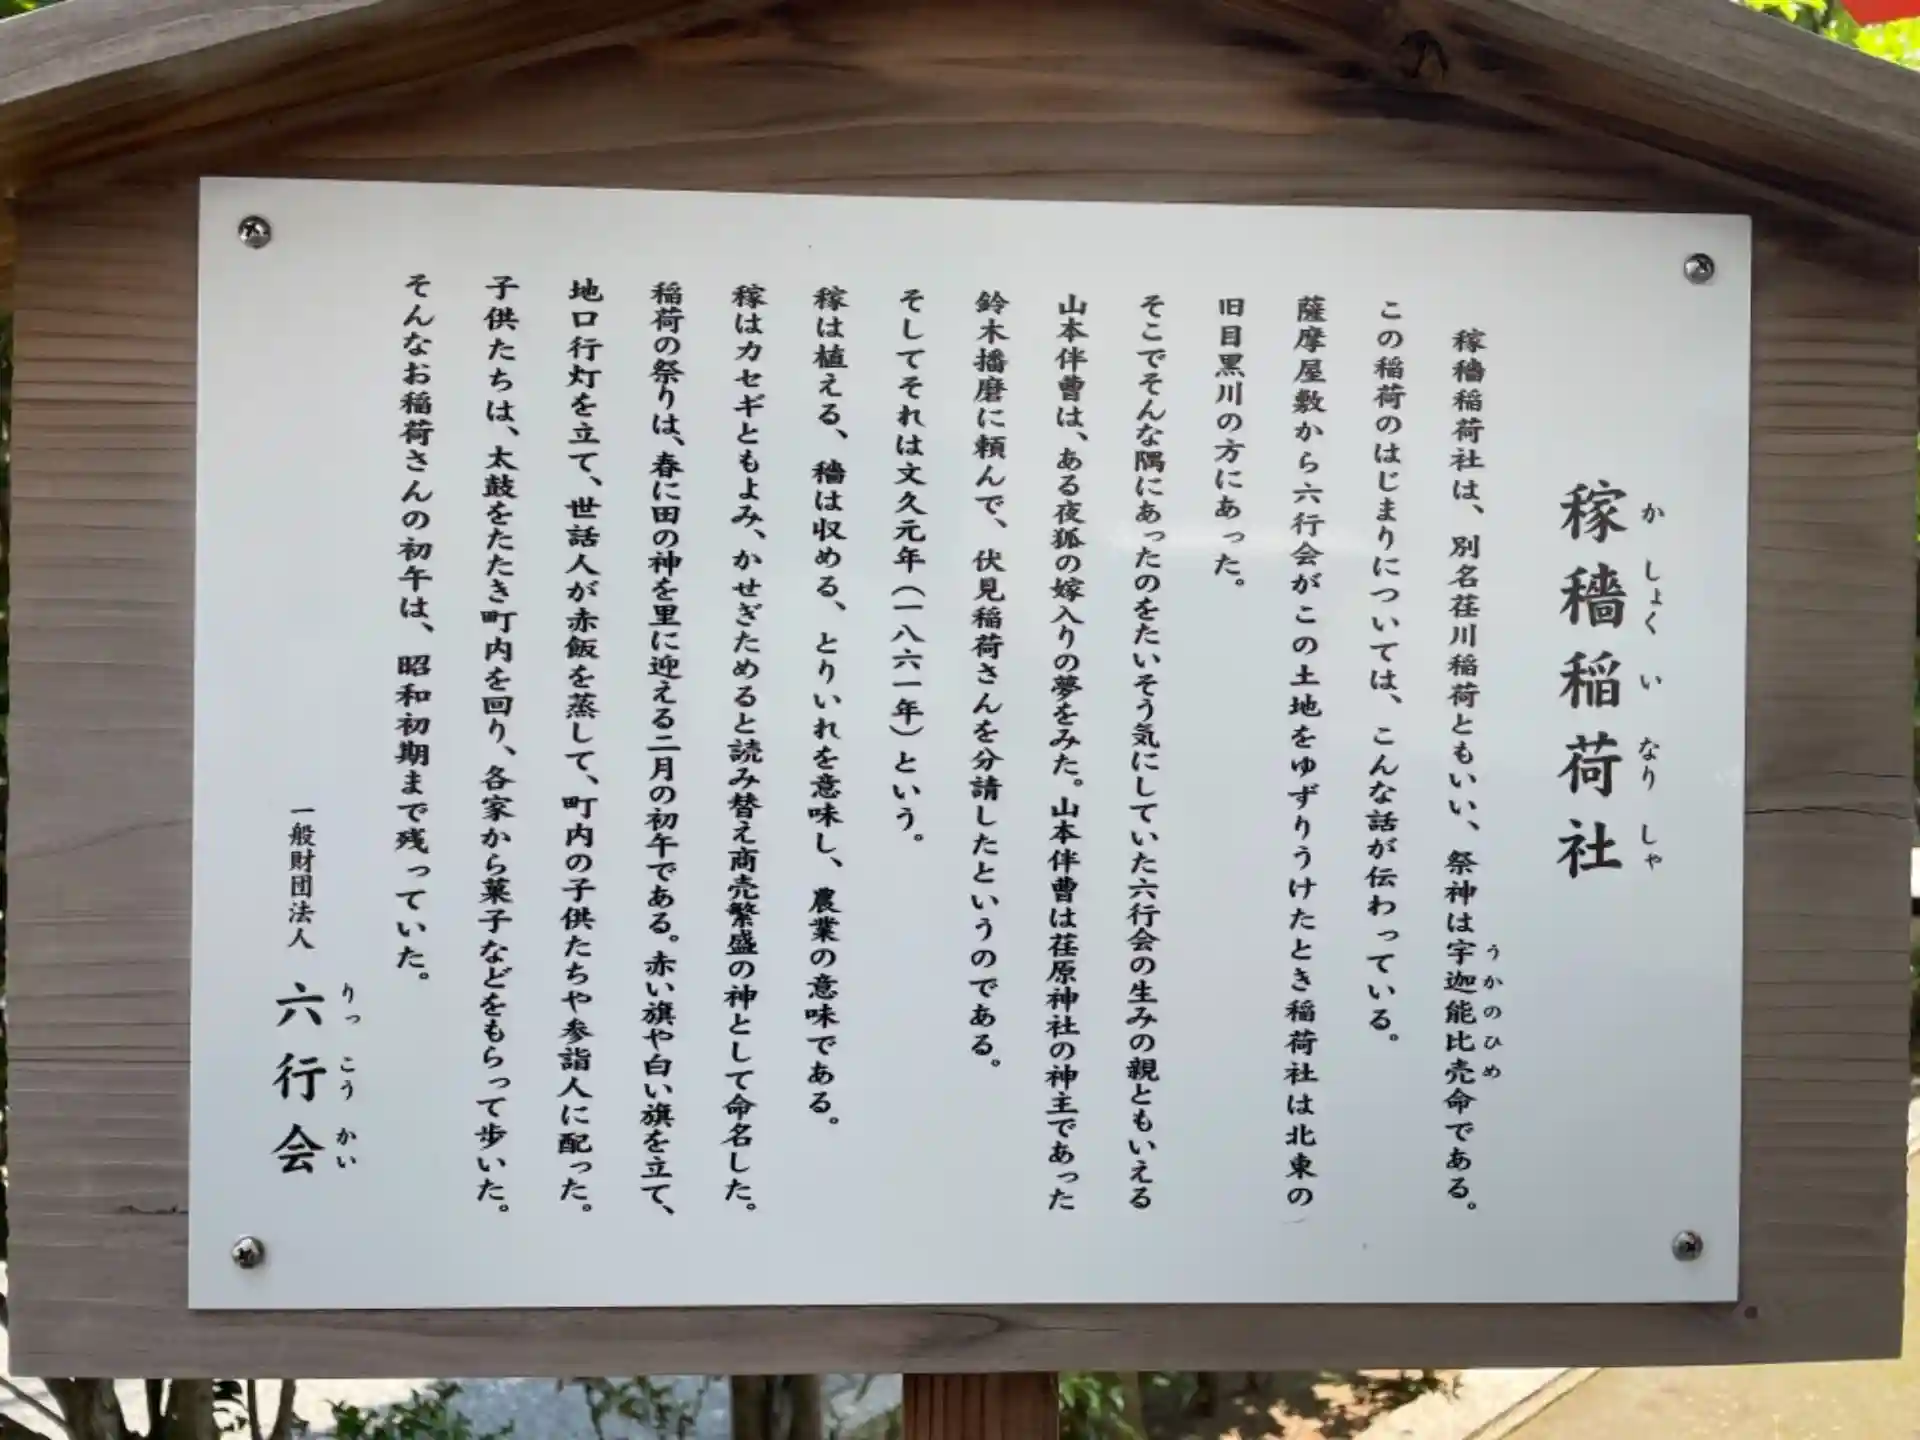 稼穡稲荷社
かしょくいなりしゃ
稼穡稲荷社は、別名荏川稲荷ともいい、祭神は宇迦能比売命である。
うかのひめ
この稲荷のはじまりについては、こんな話が伝わっている。
薩摩屋敷から六行会がこの土地をゆずりうけたとき稲荷社は北東の
旧目黒川の方にあった。
そこでそんな隅にあったのをたいそう気にしていた六行会の生みの親ともいえる
山本伴曹は、ある夜狐の嫁入りの夢をみた。山本伴曹は荏原神社の神主であった
鈴木播磨に頼んで、伏見稲荷さんを分請したというのである。
そしてそれは文久元年（一八六一年）という。
稼は植える、穡は収める、とりいれを意味し、農業の意味である。
稼はカセギともよみ、かせぎためると読み替え商売繁盛の神として命名した。
稲荷の祭りは、春に田の神を里に迎える二月の初午である。赤い旗や白い旗を立て、
地口行灯を立て、世話人が赤飯を蒸して、町内の子供たちや参詣人に配った。
子供たちは、太鼓をたたき町内を回り、各家から菓子などをもらって歩いた。
そんなお稲荷さんの初午は、昭和初期まで残っていた。
一般財団法人 六行会
りっこうかい